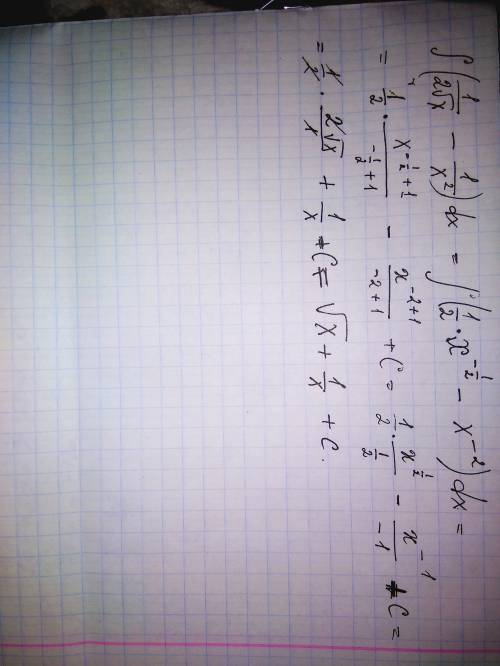 ∫(1/(2√x) − 1/x²)dx = ∫(1/2 · x^(−1/2) − x^(−2))dx =
= 1/2 · x^(−1/2+1)/(−1/2+1) − x^(−2+1)/(−2+1) + C = 1/2 · x^(1/2)/(1/2) − x^(−1)/(−1) + C =
= 1/2 · 2√x/1 + 1/x + C = √x + 1/x + C.